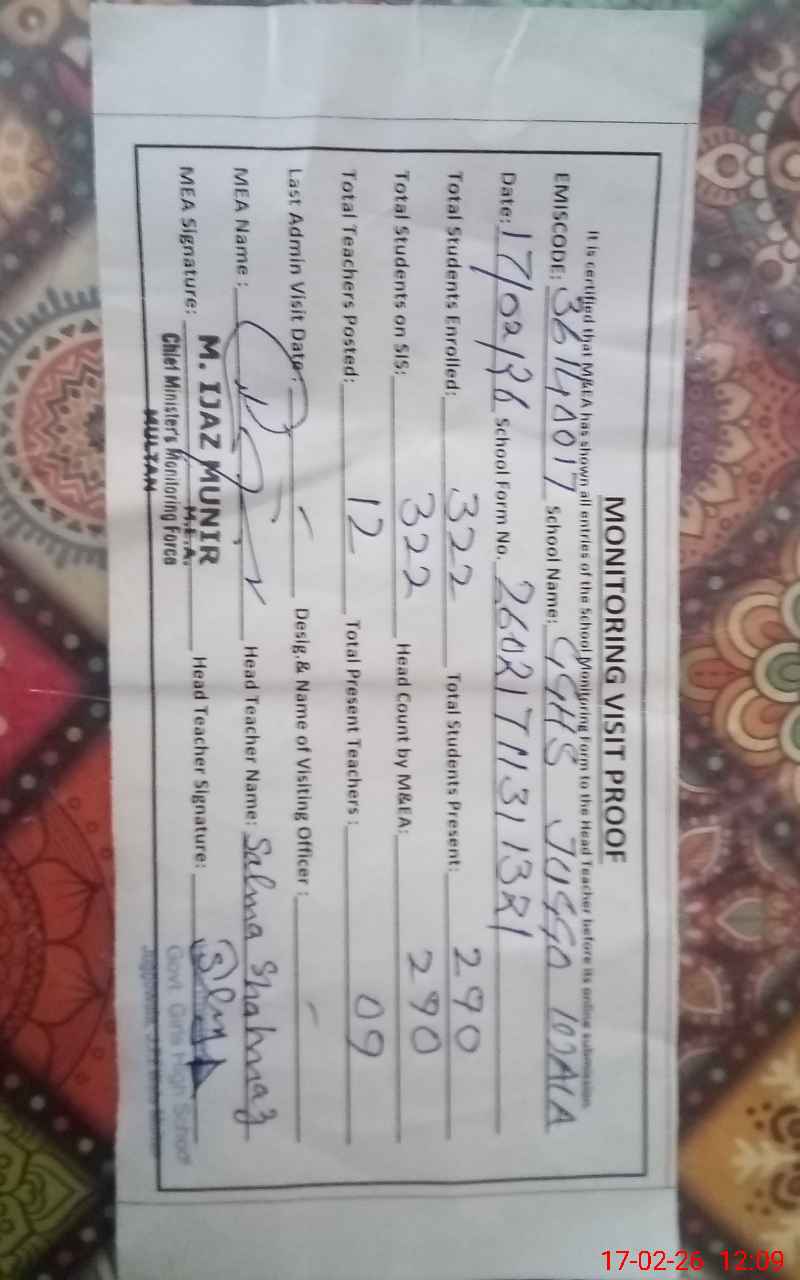 MONITORING VISIT PROOF
It is certified that M&EA has shown all entries of the School Monitoring Form to the Head Teacher before its online submission.
EMISCODE: 36140017 School Name: GGHS JUGGO
Date: 17/02/26 School Form No. 260217113113R1
Total Students Enrolled: 322 Total Students Present: 290
Total Students on SIS: 322 Head Count by M&EA: 290
Total Teachers Posted: 12 Total Present Teachers: 09
Last Admin Visit Date: - Desig,& Name of Visiting Officer: -
MEA Name: Head Teacher Name: Salma Shahnaz
MEA Signature: Head Teacher Signature:
M. IJAZ MUNIR
M.E.A.
Chief Minister's Monitoring Force
MULTAN
Govt. Girls High School
17-02-26 12:09